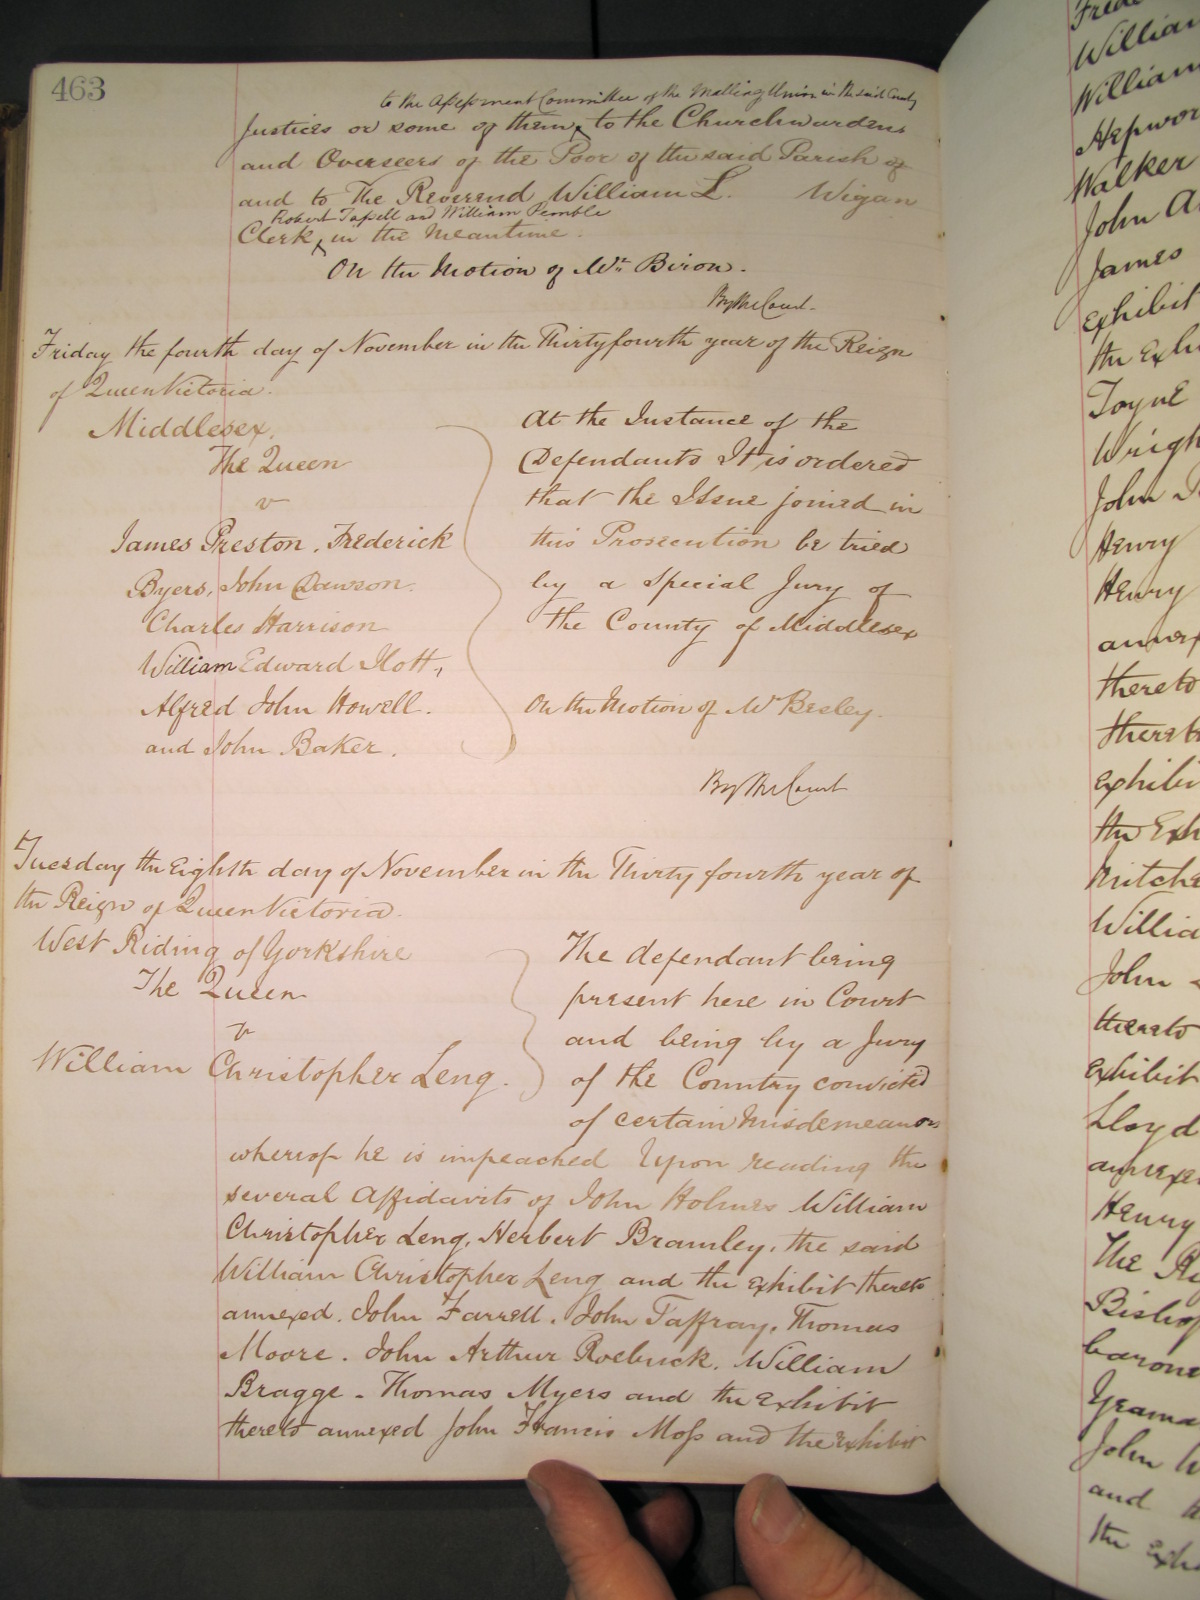 463
to the Assessment Committee of the Malling Union in the said County
Justices or some of them, to the Churchwardens
and Overseers of the Poor of the said Parish of
and to The Reverend William L. Wigan
Robert Tapsell and William Pemble
Clerk, in the meantime.
On the Motion of Mr. Biron.
By the Court.
Friday the fourth day of November in the Thirtyfourth year of the Reign
of Queen Victoria.
Middlesex.
The Queen
v
James Preston, Frederick
Byers, John Dawson.
Charles Harrison
William Edward Nott,
Alfred John Howell.
and John Baker.
At the Instance of the
Defendants It is ordered
that the Issue joined in
this Prosecution be tried
by a Special Jury of
the County of Middlesex
On the Motion of Mr Besley.
By the Court
Tuesday the Eighth day of November in the Thirty fourth year of
the Reign of Queen Victoria.
West Riding of Yorkshire
The Queen
v
William Christopher Leng.
The defendant being
present here in Court
and being by a Jury
of the Country convicted
of certain Misdemeanors
whereof he is impeached Upon reading the
several Affidavits of John Holmes William
Christopher Leng, Herbert Bramley, the said
William Christopher Leng and the exhibit thereto
annexed. John Farrell. John Taffray. Thomas
Moore. John Arthur Roebuck. William
Bragge. Thomas Myers and the Exhibit
thereto annexed John Francis Moss and the Exhibit
William
William
Walker
John
James
exhibit
the
Toyne
John
Henry
Henry
thereto
the
John
thereto
Exhibit
Lloyd
Henry
The
John
and
the